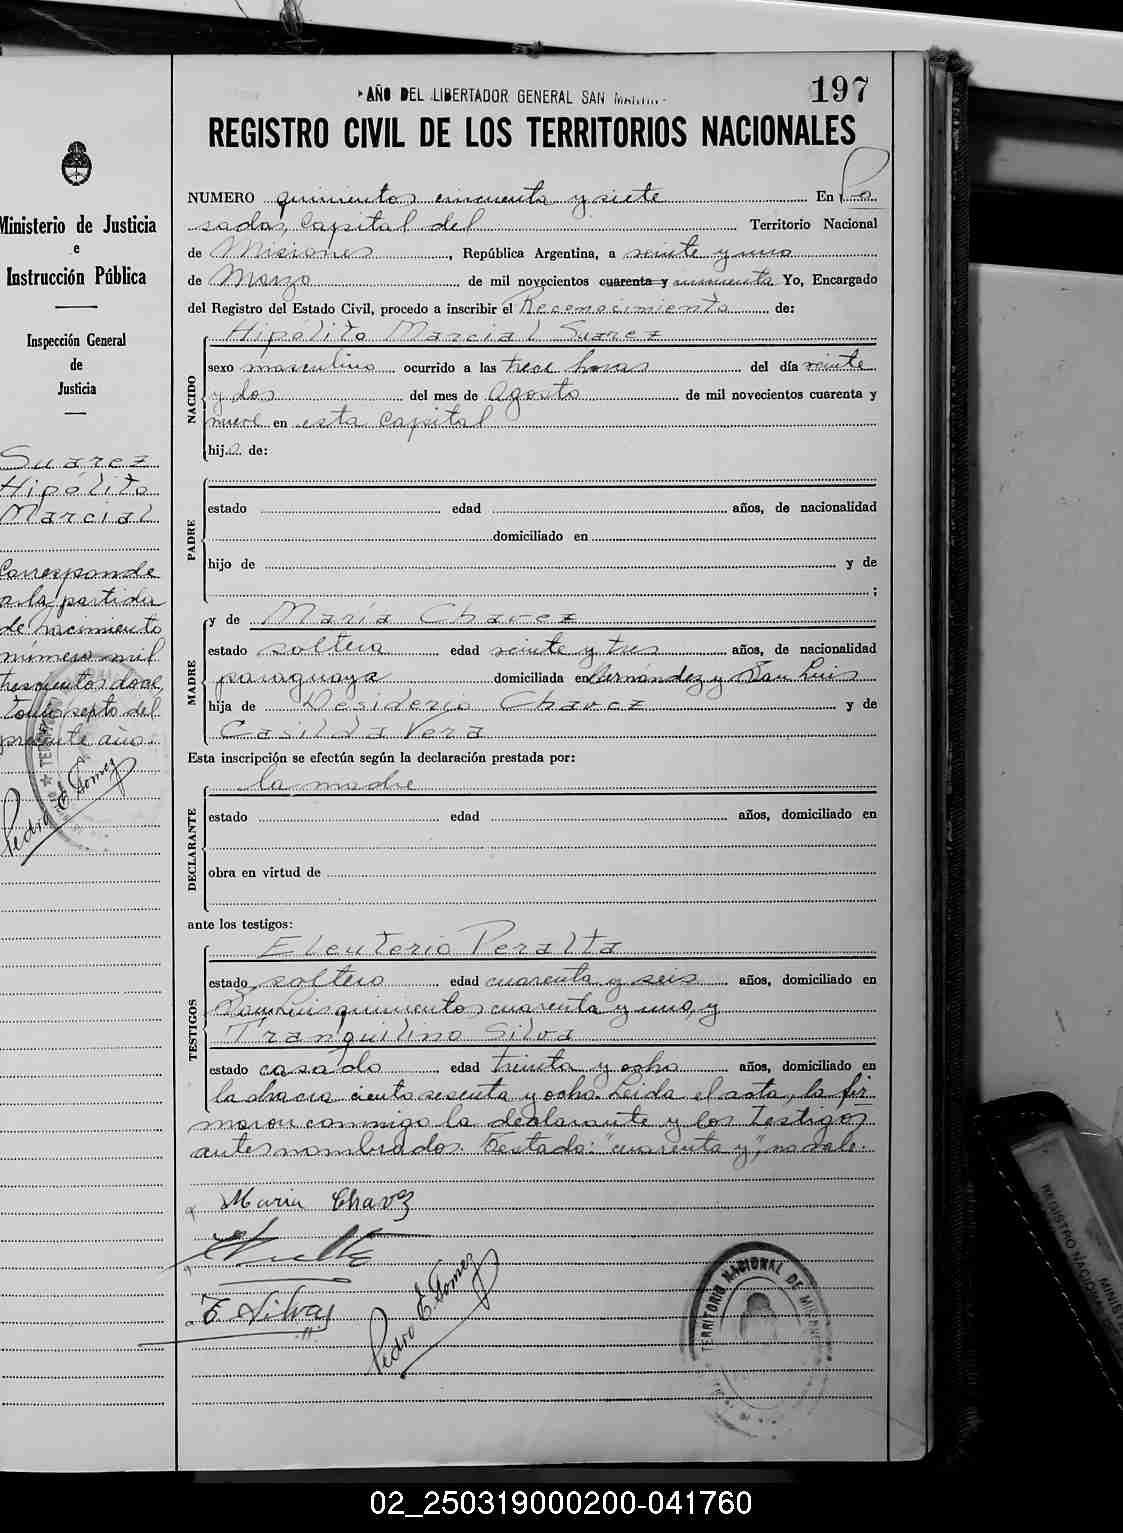 AÑO DEL LIBERTADOR GENERAL SAN MARTIN
197
REGISTRO CIVIL DE LOS TERRITORIOS NACIONALES
Ministerio de Justicia
e
Instrucción Pública
Inspección General
de
Justicia
Suarez
Hipólito
Marcial
Corresponde
a la partida
de nacimiento
número mil
trescientos doce
tomo septo del
presente año.
Pedro E. Gomez
NUMERO quinientos cincuenta y siete En Po
sadas, Capital del Territorio Nacional
de Misiones, República Argentina, a veinte y uno
de Marzo de mil novecientos cuarenta y cincuenta Yo, Encargado
del Registro del Estado Civil, procedo a inscribir el Reconocimiento de:
Hipólito Marcial Suarez
NACIDO
sexo masculino ocurrido a las trece horas del día veinte
y dos del mes de Agosto de mil novecientos cuarenta y
nueve en esta Capital
hijo de:
PADRE
estado edad años, de nacionalidad
domiciliado en
hijo de y de
;
MADRE
y de María Chavez
estado soltera edad veinte y tres años, de nacionalidad
paraguaya domiciliada en Hernández y San Luis
hija de Desiderio Chavez y de
Casilda Vera
Esta inscripción se efectúa según la declaración prestada por:
la madre
DECLARANTE
estado edad años, domiciliado en
obra en virtud de
ante los testigos:
TESTIGOS
Eleuterio Peralta
estado soltero edad cuarenta y seis años, domiciliado en
San Luis quinientos cuarenta y uno, y
Tranquilino Silva
estado casado edad treinta y ocho años, domiciliado en
la chacra ciento sesenta y ocho. Leida el acta, la fir
maron conmigo la declarante y los testigos
antes nombrados. Testado: "cuarenta y", no vale.
Maria Chavez
T. Silva
Pedro E. Gomez
TERRITORIO NACIONAL DE MISIONES
REGISTRO NACIONAL
MINIST
02_250319000200-041760